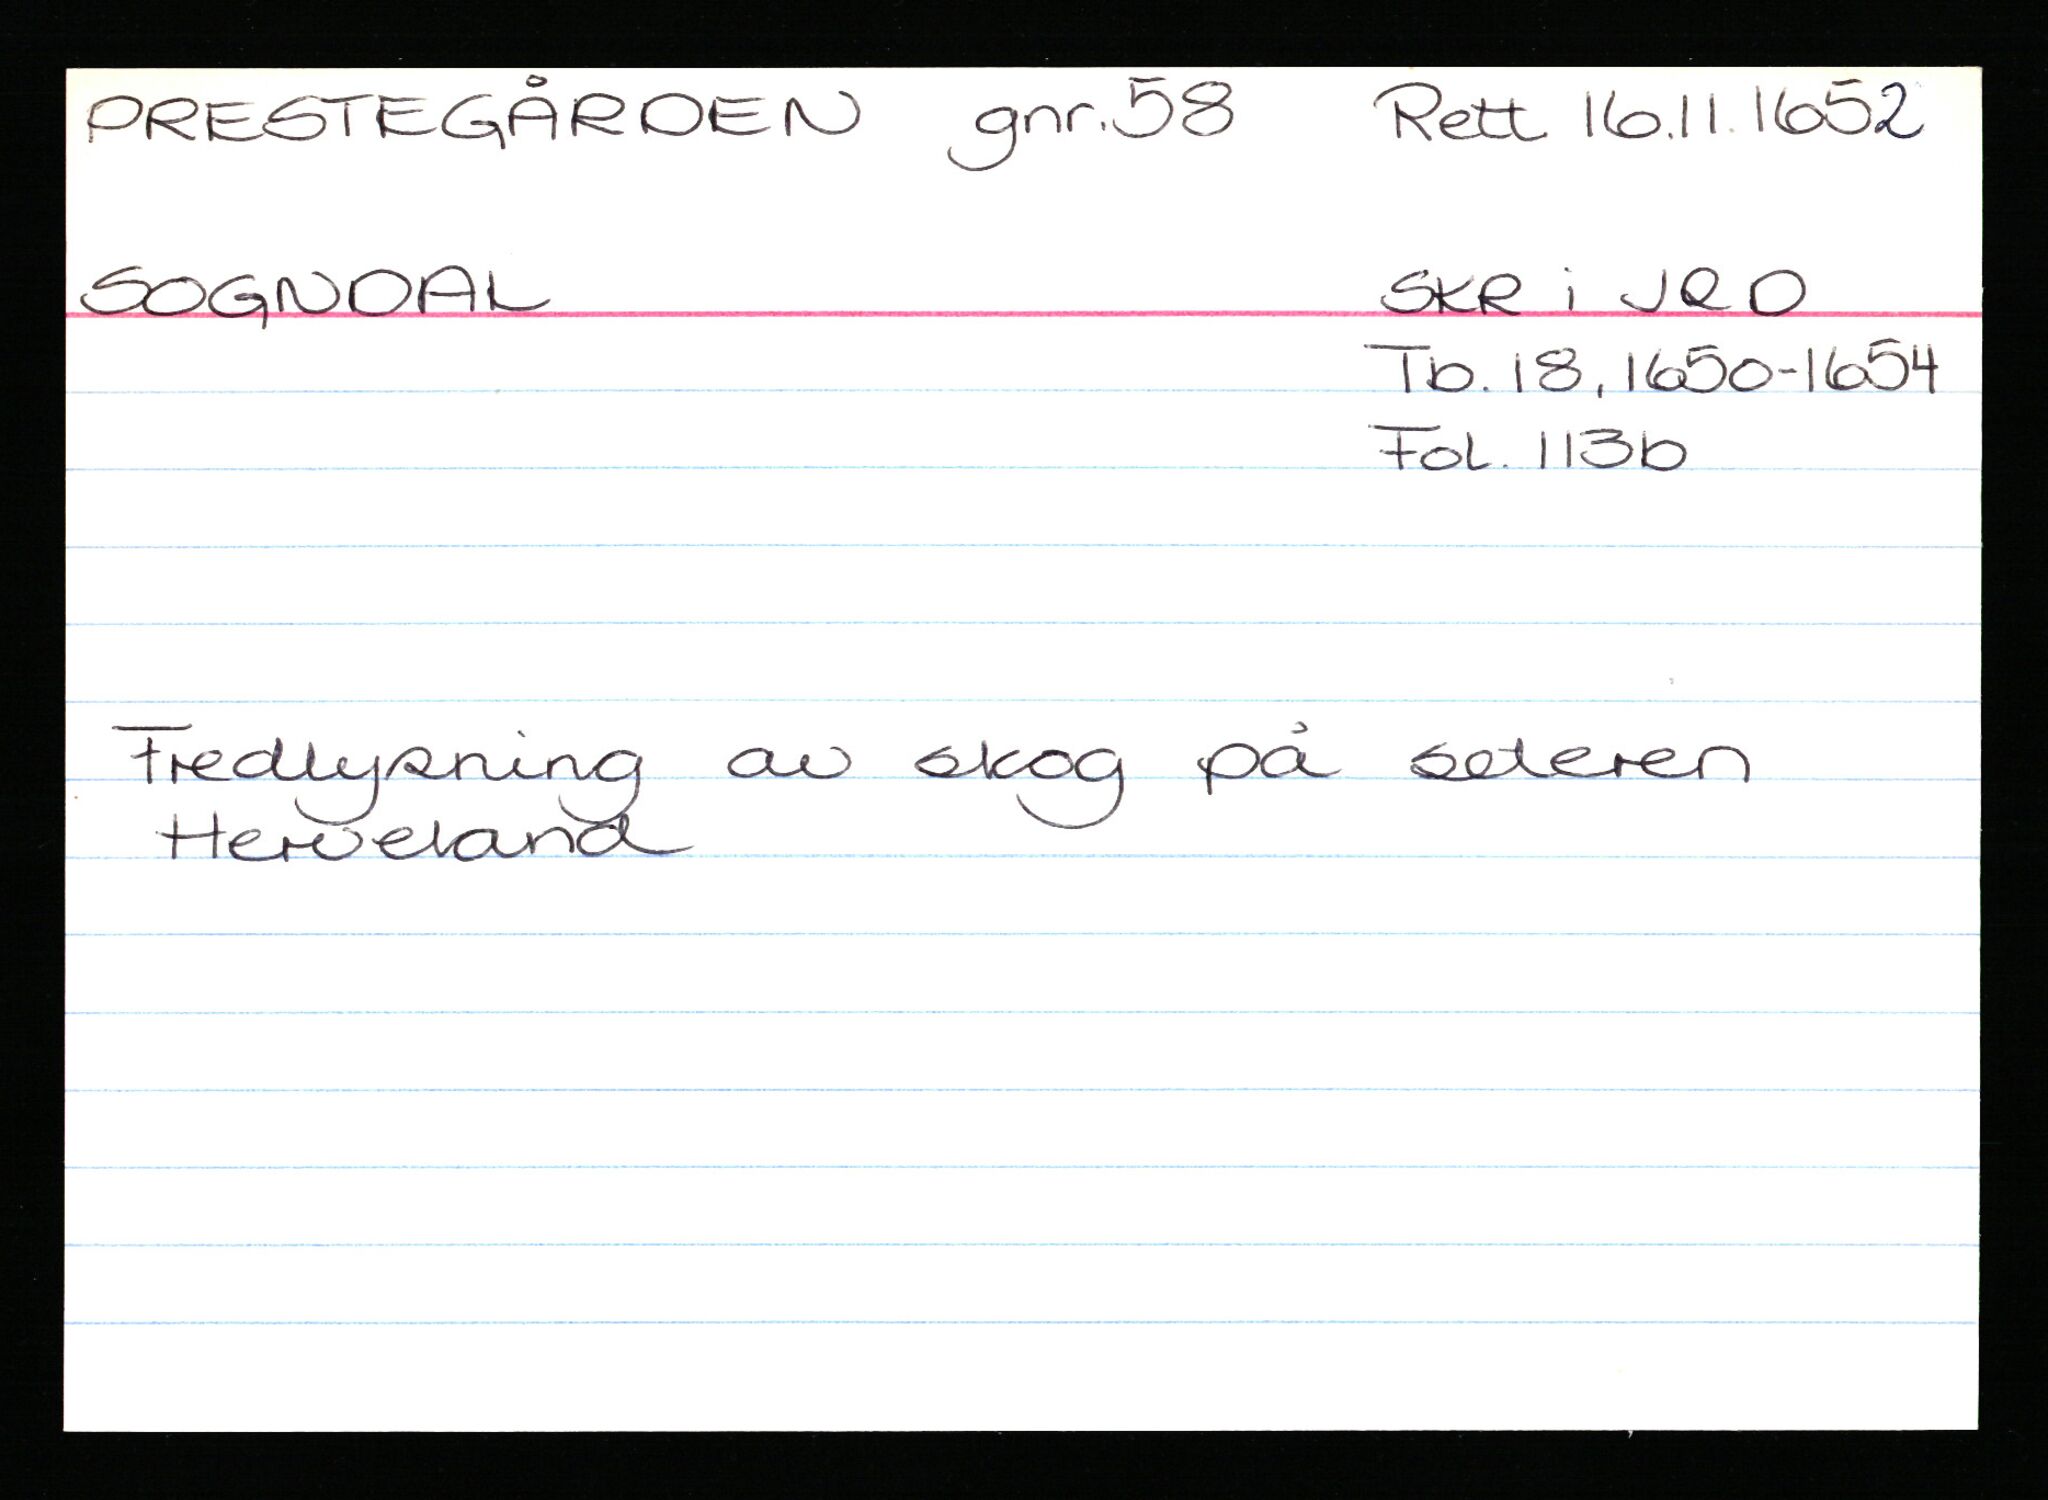 PRESTEGÅRDEN gnr. 58 Rett 16.11.1652
SOGNDAL SKR i J&D
Tb. 18, 1650-1654
Fol. 113b
Fredlysning av skog på seteren
Herveland